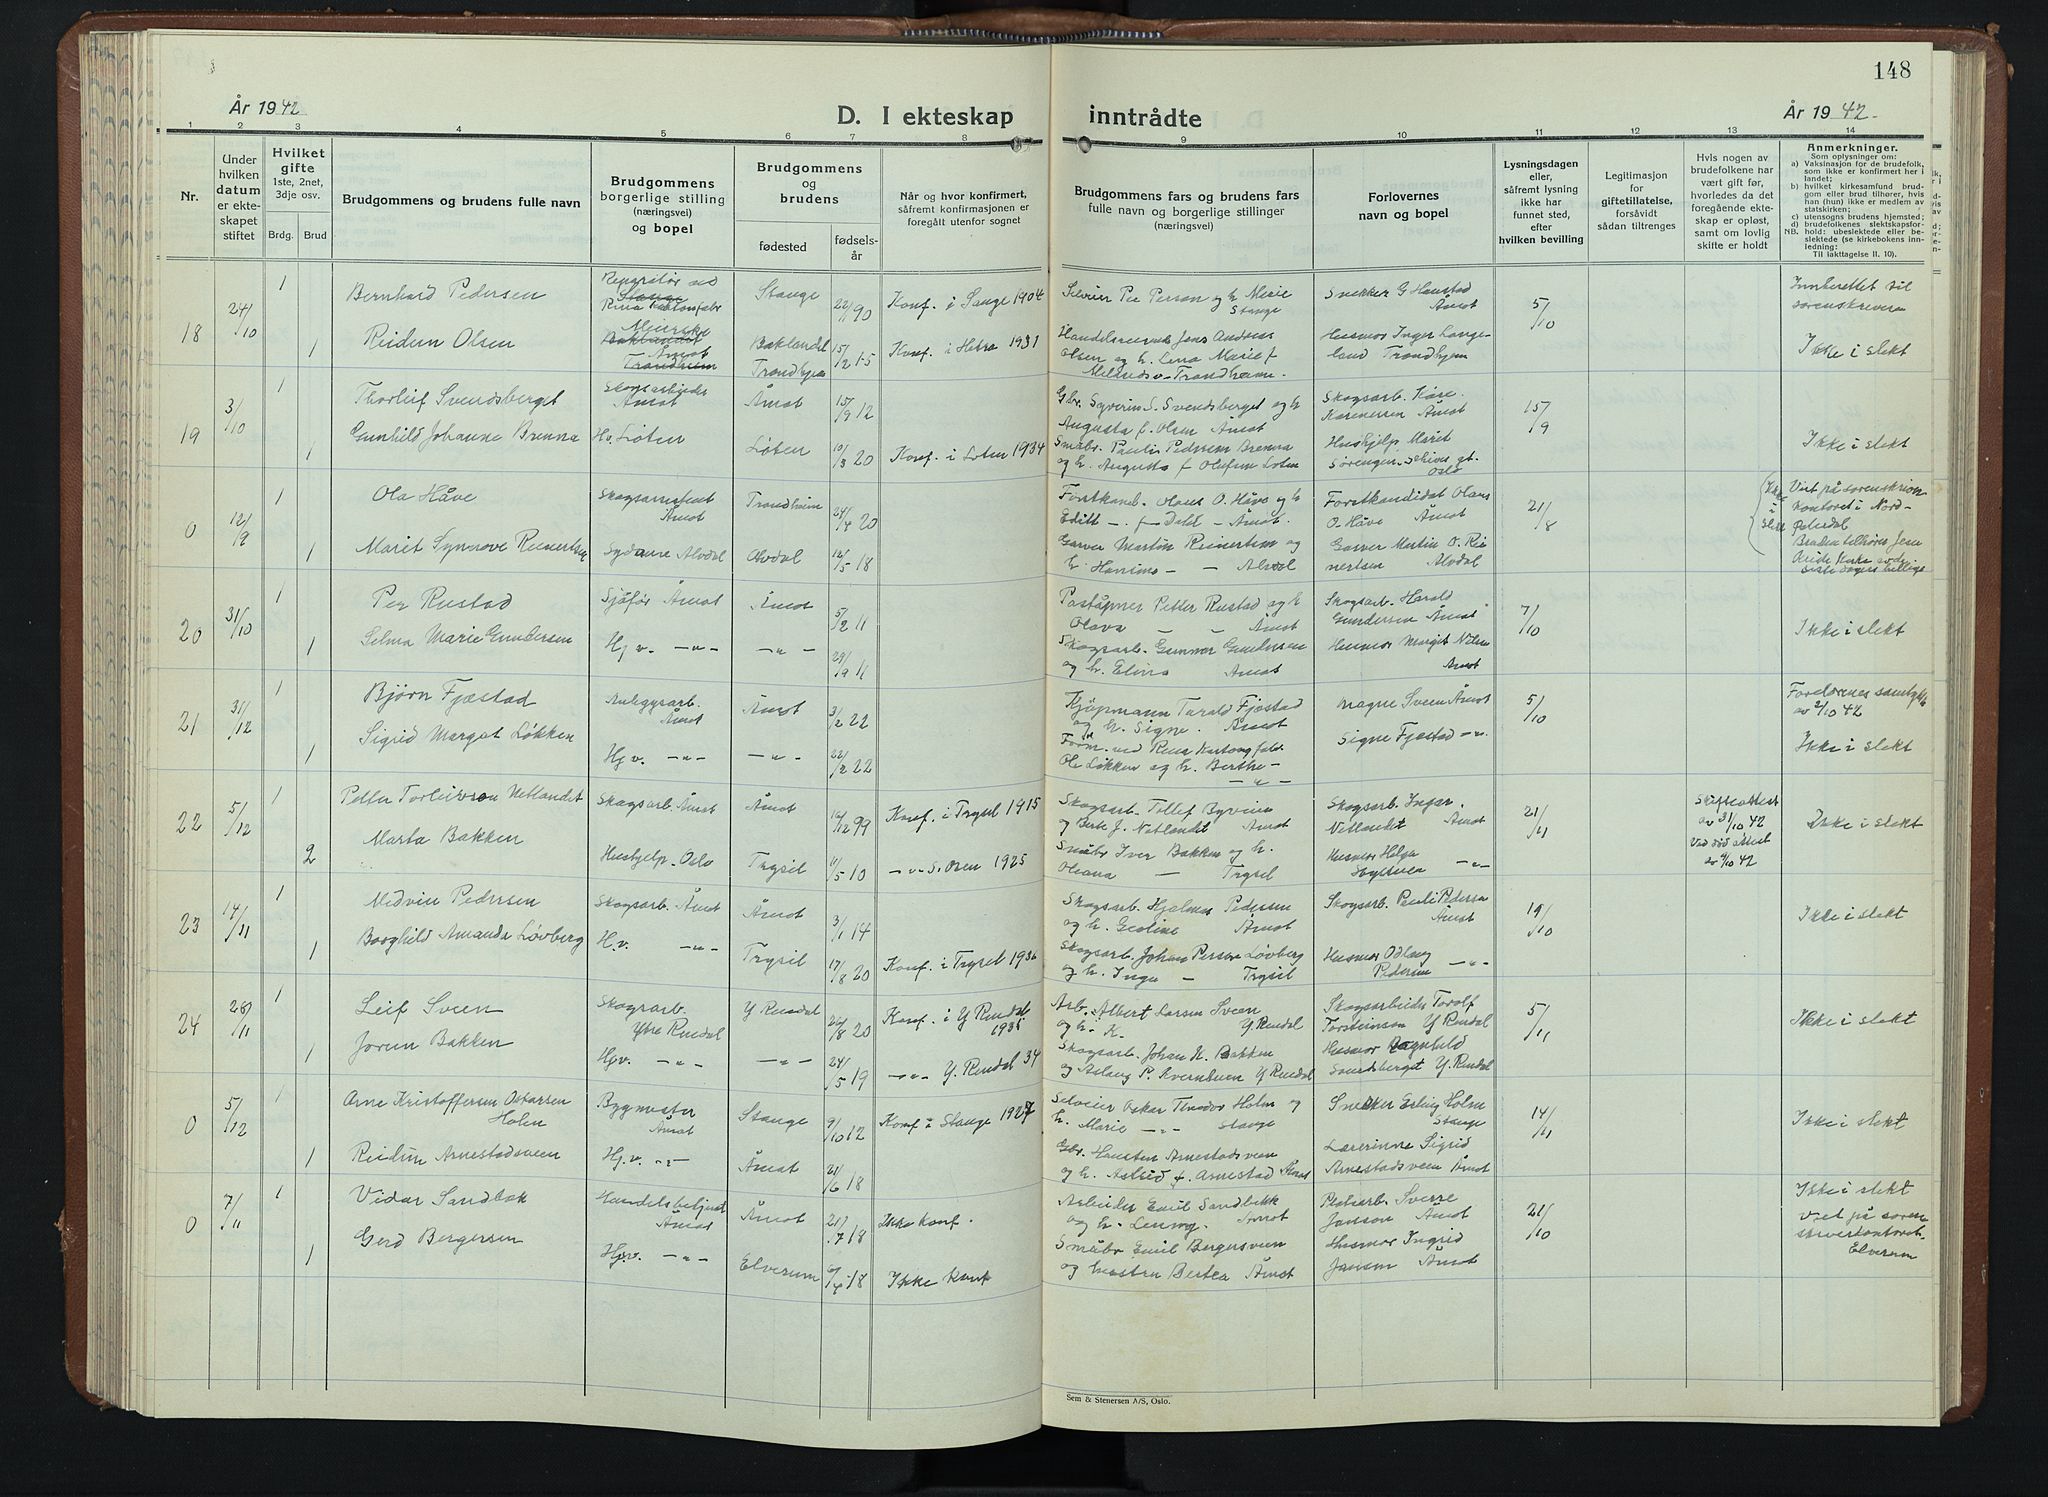 148
År 1942
D. I ekteskap
inntrådte
År 1942.
1 2 3 4 5 6 7 8 9 10 11 12 13 14
Nr.
Under hvilken datum er ekteskapet stiftet
Hvilket gifte
1ste, 2net, 3dje osv.
Brdg. Brud
Brudgommens og brudens fulle navn
Brudgommens borgerlige stilling (næringsvei) og bopel
Brudgommens og brudens
fødested
fødselsår
Når og hvor konfirmert,
såfremt konfirmasjonen er
foregått utenfor sognet
Brudgommens fars og brudens fars
fulle navn og borgerlige stillinger
(næringsvei)
Forlovernes
navn og bopel
Lysningsdagen
eller,
såfremt lysning
ikke har
funnet sted,
efter
hvilken bevilling
Legitimasjon
for
giftetillatelse,
forsåvidt
sådan tiltrenges
Hvis nogen av
brudefolkene har
vært gift før,
hvorledes da det
foregående ekteskap er opløst,
samt om lovlig
skifte er holdt
Anmerkninger.
Som oplysninger om:
a) Vaksinasjon for de brudefolk, som ikke er konfirmert her i landet;
b) hvilket kirkesamfund brudgom eller brud tilhører, hvis han (hun) ikke er medlem av statskirken;
c) utensogns brudens hjemsted;
d) brudefolkenes slektskapsforhold: ubeslektede eller beslektede (se kirkebokens innledning:
NB. Til iakttagelse II. 10).
18 24/10 1 Bernhard Pedersen
Stange 22/ 90 Konf. i Stange 1904
Per Person og h. Marie
Stange
Snekker G Haustad
Åmot
5/10
Innberettet til
sorenskriveren
1 Reidun Olsen
Åmot
Baklandet
Trondhjem 15/2 15 Konf. i Hetra 1931
Jens Andreas
Olsen og h. Lena Marie f
Trondheim.
Husmor Inger Lange-
land Trondhjem
Ikke i slekt
19 3/10 1 Thorleif Svendsberget
Skogsarbeider
Åmot
Åmot 15/9 12
Gbr. Syverin S. Svendsberget og h
Augusta f. Olsen Åmot
Skogsarb. Kåre
Åmot
15/9
1 Gunhild Johanne Brenna
Hv. Løten
Løten 10/3 20 Konf. i Løten 1934
Småbr. Paulis Pedersen Brenna
og h. Augusta f Olsen Løten
Hushjelp Marit
Sørengen
Oslo
Ikke i slekt
0 12/9 1 Ola Håve
Skogsassistent
Åmot
Trondheim 24/4 20
Forstkand. Olaus O. Håve og h
Edith — f Dahl — Åmot.
Forstkandidat Olaus
O. Håve Åmot
21/8
Ikke
i
slekt
Viet på sorenskriver
kontoret i Nord-
Østerdal
1 Marit Synnøve Reinertsen
Alvdal
Alvdal 12/5 18
Garver Martin Reinertsen og
h. — — Alvdal
Garver Martin O. Rei
nertsen Alvdal
Bruden tilhører Jesu
Kristi Kirke av de
siste dagers hellige
20 31/10 1 Per Rustad
Sjåfør Åmot
Åmot 5/2 11
Poståpner Petter Rustad og h
Olava — — Åmot
Skogsarb. Harald
Gundersen Åmot
7/10
1 Selma Marie Gundersen
Hjv. —"—
—"— 29/9 11
Skogsarb. Gunnar Gundersen
og h. Elina Åmot
Husmor Margit Nilsen
Åmot
Ikke i slekt
21 31/12 1 Bjørn Fjæstad
Anleggsarb.
Åmot
Åmot 3/2 22
Kjøpmann Tarald Fjæstad
og h. Signe. Åmot
Magne Sveen Åmot
5/10
Foreldrenes samtykke
av 2/10 42
1 Sigrid Margot Løkken
Hjv. —"—
—"— 22/2 22
Form. ved Rena Kartongfabr.
Ole Løkken og h. Berthe —
—"—
Signe Fjæstad —"—
Ikke i slekt
22 5/12 1 Petter Torleivson Netlandet
Skogsarb. Åmot
Åmot 10/12 99 Konf. i Trysil 1915
Skogsarb. Tollef Byveien
og Berte J. Netlandet Åmot
Skogsarb. Ingar
Netlandet Åmot
21/11
Skifteattest
av 31/10 42
ved død attest
av 9/10 42
Ikke i slekt
2 Marta Bakken
Hushjelp - Oslo
Trysil 11/5 10 —"— S. Osen 1925
Småbr Iver Bakken og h.
Oleana — Trysil
Husmor Helga
—"—
23 14/11 1 Medvin Pedersen
Skogsarb. Åmot
Åmot 3/1 14
Skogsarb. Hjalmar Pedersen
og h. Geoline Åmot
Skogsarb. Pauli Pedersen
Åmot
19/10
Ikke i slekt
1 Borghild Amanda Løvberg
H.v. —"—
Trysil 17/8 20 Konf. i Trysil 1936
Skogsarb. Johan Persen Løvberg
og h. Inga — Trysil
Husmor Odlaug
Pedersen —"—
24 28/11 1 Leif Sveen
Skogsarb.
Ytre Rendal
Y Rendal 26/8 20 Konf. i Y Rendal
1935
Arb. Albert Larsen Sveen
og h. K. Y Rendal
Skogsarbeider Torolf
Torsteinson Y Rendal
5/11
Ikke i slekt
1 Jorun Bakken
Hjv. —"—
—"— 24/5 19 —"— Y. Rendal 34
Skogsarb. Johan N. Bakken
og Aslaug P. Kvernbuen Y Rendal
Husmor Ragnhild
Y. Rendal
0 5/12 1 Arne Kristoffersen Oskarsen
Holm
Byggmester
Åmot
Stange 9/10 12 Konf i Stange 1927
Selveier Oskar Teodor Holm og
h. Marie —"— Stange
Snekker Erling Holm
Stange
14/11
Ikke i slekt
1 Reidun Arnestadsveen
Hj.v. —"—
Åmot 21/6 18
Gbr. Hansten Arnestadsveen
og h. Astrid f. Arnestad Åmot
Lærerinne Sigrid
Arnestadsveen Åmot
0 7/11 1 Vidar Sandbak
Handelsbetjent
Åmot
Åmot 21/7 18 Ikke konf.
Arbeider Emil Sandbakk
og h. Åmot
Sverre
Jansen Åmot
21/10
Ikke i slekt
viet på soren-
skriverkontoret
Elverum
1 Gerd Bergersen
Hjv. —"—
Elverum 6/4 18 Ikke konf
Småbr Emil Bergersveen
og hustru Bertea Åmot
Husmor Ingrid
Jansen Åmot
Sem & Stenersen A/S, Oslo.